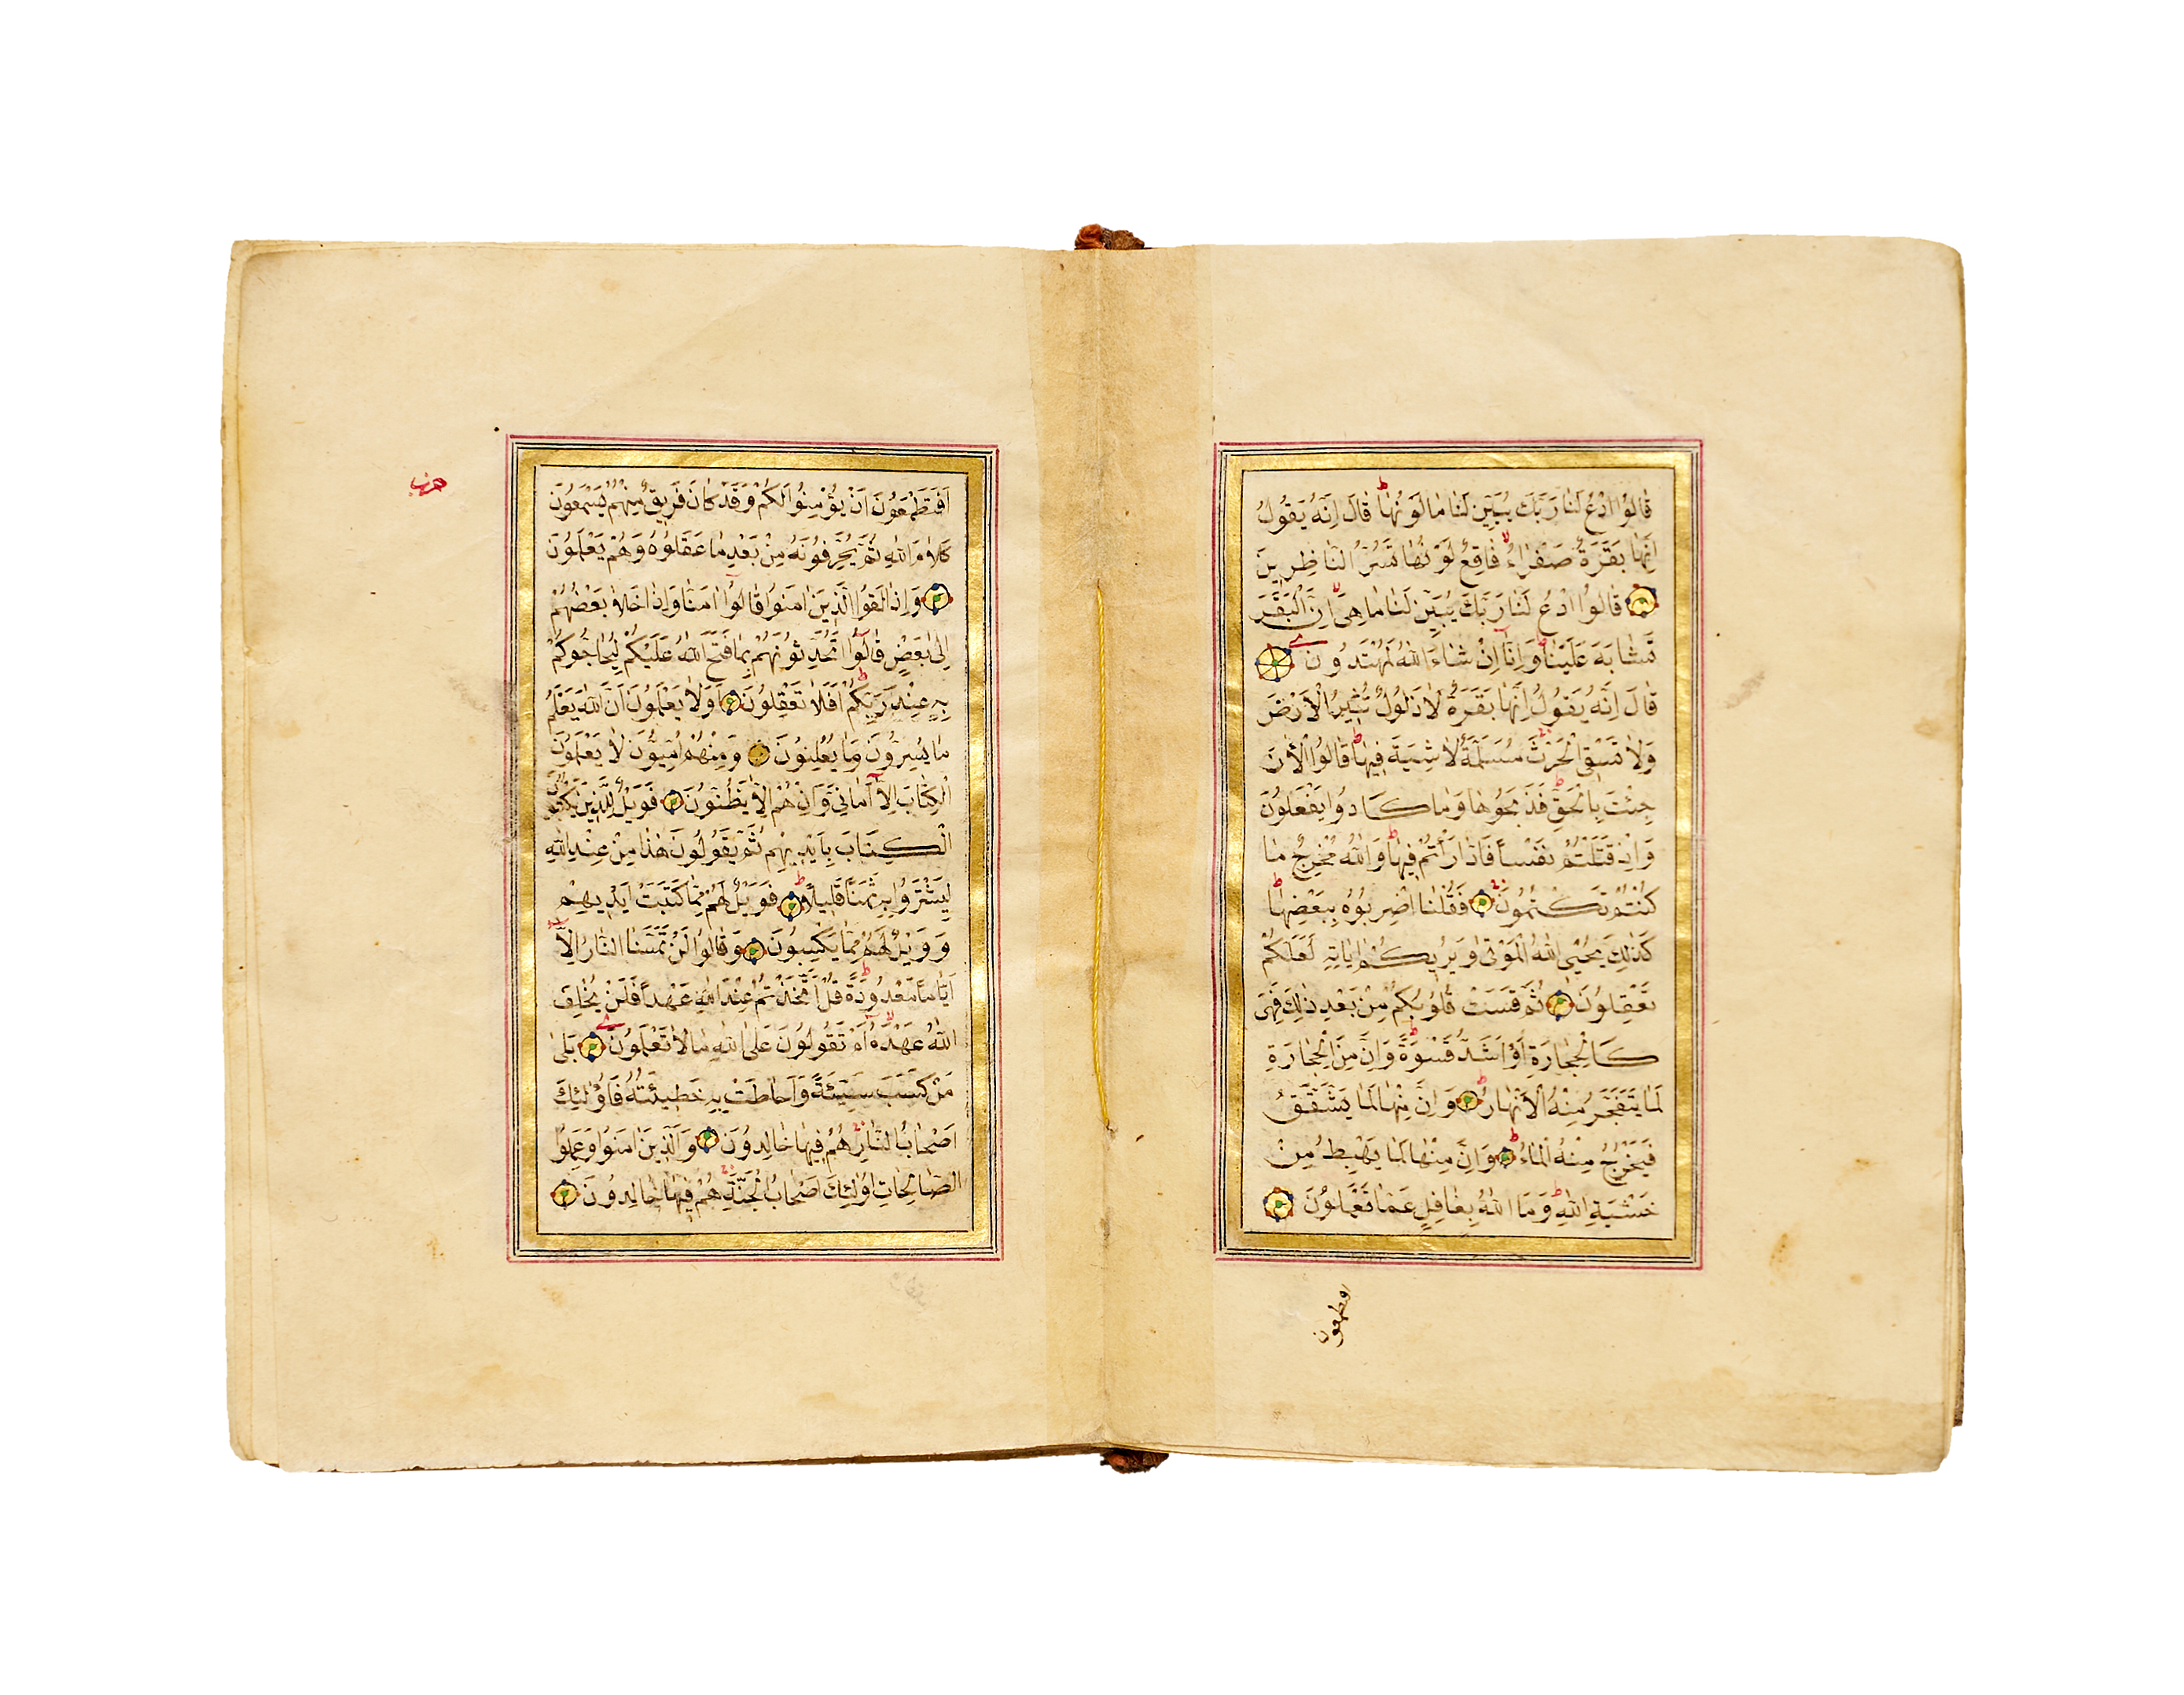 قَالُوا ادْعُ لَنَا رَبَّكَ يُبَيِّنْ لَنَا مَا لَوْنُهَا ط قَالَ إِنَّهُ يَقُولُ
إِنَّهَا بَقَرَةٌ صَفْرَاءُ لا فَاقِعٌ لَوْنُهَا تَسُرُّ النَّاظِرِينَ
قَالُوا ادْعُ لَنَا رَبَّكَ يُبَيِّنْ لَنَا مَا هِيَ لا إِنَّ الْبَقَرَ
تَشَابَهَ عَلَيْنَا ط وَإِنَّا إِنْ شَاءَ اللهُ لَمُهْتَدُونَ
قَالَ إِنَّهُ يَقُولُ إِنَّهَا بَقَرَةٌ لَا ذَلُولٌ تُثِيرُ الْأَرْضَ
وَلَا تَسْقِي الْحَرْثَ مُسَلَّمَةٌ لَا شِيَةَ فِيهَا ط قَالُوا الْآنَ
جِئْتَ بِالْحَقِّ ط فَذَبَحُوهَا وَمَا كَادُوا يَفْعَلُونَ
وَإِذْ قَتَلْتُمْ نَفْسًا فَادَّارَأْتُمْ فِيهَا ط وَاللهُ مُخْرِجٌ مَا
كُنْتُمْ تَكْتُمُونَ فَقُلْنَا اضْرِبُوهُ بِبَعْضِهَا ط
كَذَلِكَ يُحْيِي اللهُ الْمَوْتَى وَيُرِيكُمْ آيَاتِهِ لَعَلَّكُمْ
تَعْقِلُونَ ثُمَّ قَسَتْ قُلُوبُكُمْ مِنْ بَعْدِ ذَلِكَ فَهِيَ
كَالْحِجَارَةِ أَوْ أَشَدُّ قَسْوَةً ط وَإِنَّ مِنَ الْحِجَارَةِ
لَمَا يَتَفَجَّرُ مِنْهُ الْأَنْهَارُ ط وَإِنَّ مِنْهَا لَمَا يَشَّقَّقُ
فَيَخْرُجُ مِنْهُ الْمَاءُ ط وَإِنَّ مِنْهَا لَمَا يَهْبِطُ مِنْ
خَشْيَةِ اللهِ ط وَمَا اللهُ بِغَافِلٍ عَمَّا تَعْمَلُونَ
افتطمعون
حزب
أَفَتَطْمَعُونَ أَنْ يُؤْمِنُوا لَكُمْ وَقَدْ كَانَ فَرِيقٌ مِنْهُمْ يَسْمَعُونَ
كَلَامَ اللهِ ثُمَّ يُحَرِّفُونَهُ مِنْ بَعْدِ مَا عَقَلُوهُ وَهُمْ يَعْلَمُونَ
وَإِذَا لَقُوا الَّذِينَ آمَنُوا قَالُوا آمَنَّا وَإِذَا خَلَا بَعْضُهُمْ
إِلَى بَعْضٍ قَالُوا أَتُحَدِّثُونَهُمْ بِمَا فَتَحَ اللهُ عَلَيْكُمْ لِيُحَاجُّوكُمْ
بِهِ عِنْدَ رَبِّكُمْ ط أَفَلَا تَعْقِلُونَ أَوَلَا يَعْلَمُونَ أَنَّ اللهَ يَعْلَمُ
مَا يُسِرُّونَ وَمَا يُعْلِنُونَ وَمِنْهُمْ أُمِّيُّونَ لَا يَعْلَمُونَ
الْكِتَابَ إِلَّا أَمَانِيَّ وَإِنْ هُمْ إِلَّا يَظُنُّونَ فَوَيْلٌ لِلَّذِينَ يَكْتُبُونَ
الْكِتَابَ بِأَيْدِيهِمْ ثُمَّ يَقُولُونَ هَذَا مِنْ عِنْدِ اللهِ
لِيَشْتَرُوا بِهِ ثَمَنًا قَلِيلًا ط فَوَيْلٌ لَهُمْ مِمَّا كَتَبَتْ أَيْدِيهِمْ
وَوَيْلٌ لَهُمْ مِمَّا يَكْسِبُونَ وَقَالُوا لَنْ تَمَسَّنَا النَّارُ إِلَّا
أَيَّامًا مَعْدُودَةً ط قُلْ أَتَّخَذْتُمْ عِنْدَ اللهِ عَهْدًا فَلَنْ يُخْلِفَ
اللهُ عَهْدَهُ أَمْ تَقُولُونَ عَلَى اللهِ مَا لَا تَعْلَمُونَ بَلَى
مَنْ كَسَبَ سَيِّئَةً وَأَحَاطَتْ بِهِ خَطِيئَتُهُ فَأُولَئِكَ
أَصْحَابُ النَّارِ هُمْ فِيهَا خَالِدُونَ وَالَّذِينَ آمَنُوا وَعَمِلُوا
الصَّالِحَاتِ أُولَئِكَ أَصْحَابُ الْجَنَّةِ هُمْ فِيهَا خَالِدُونَ